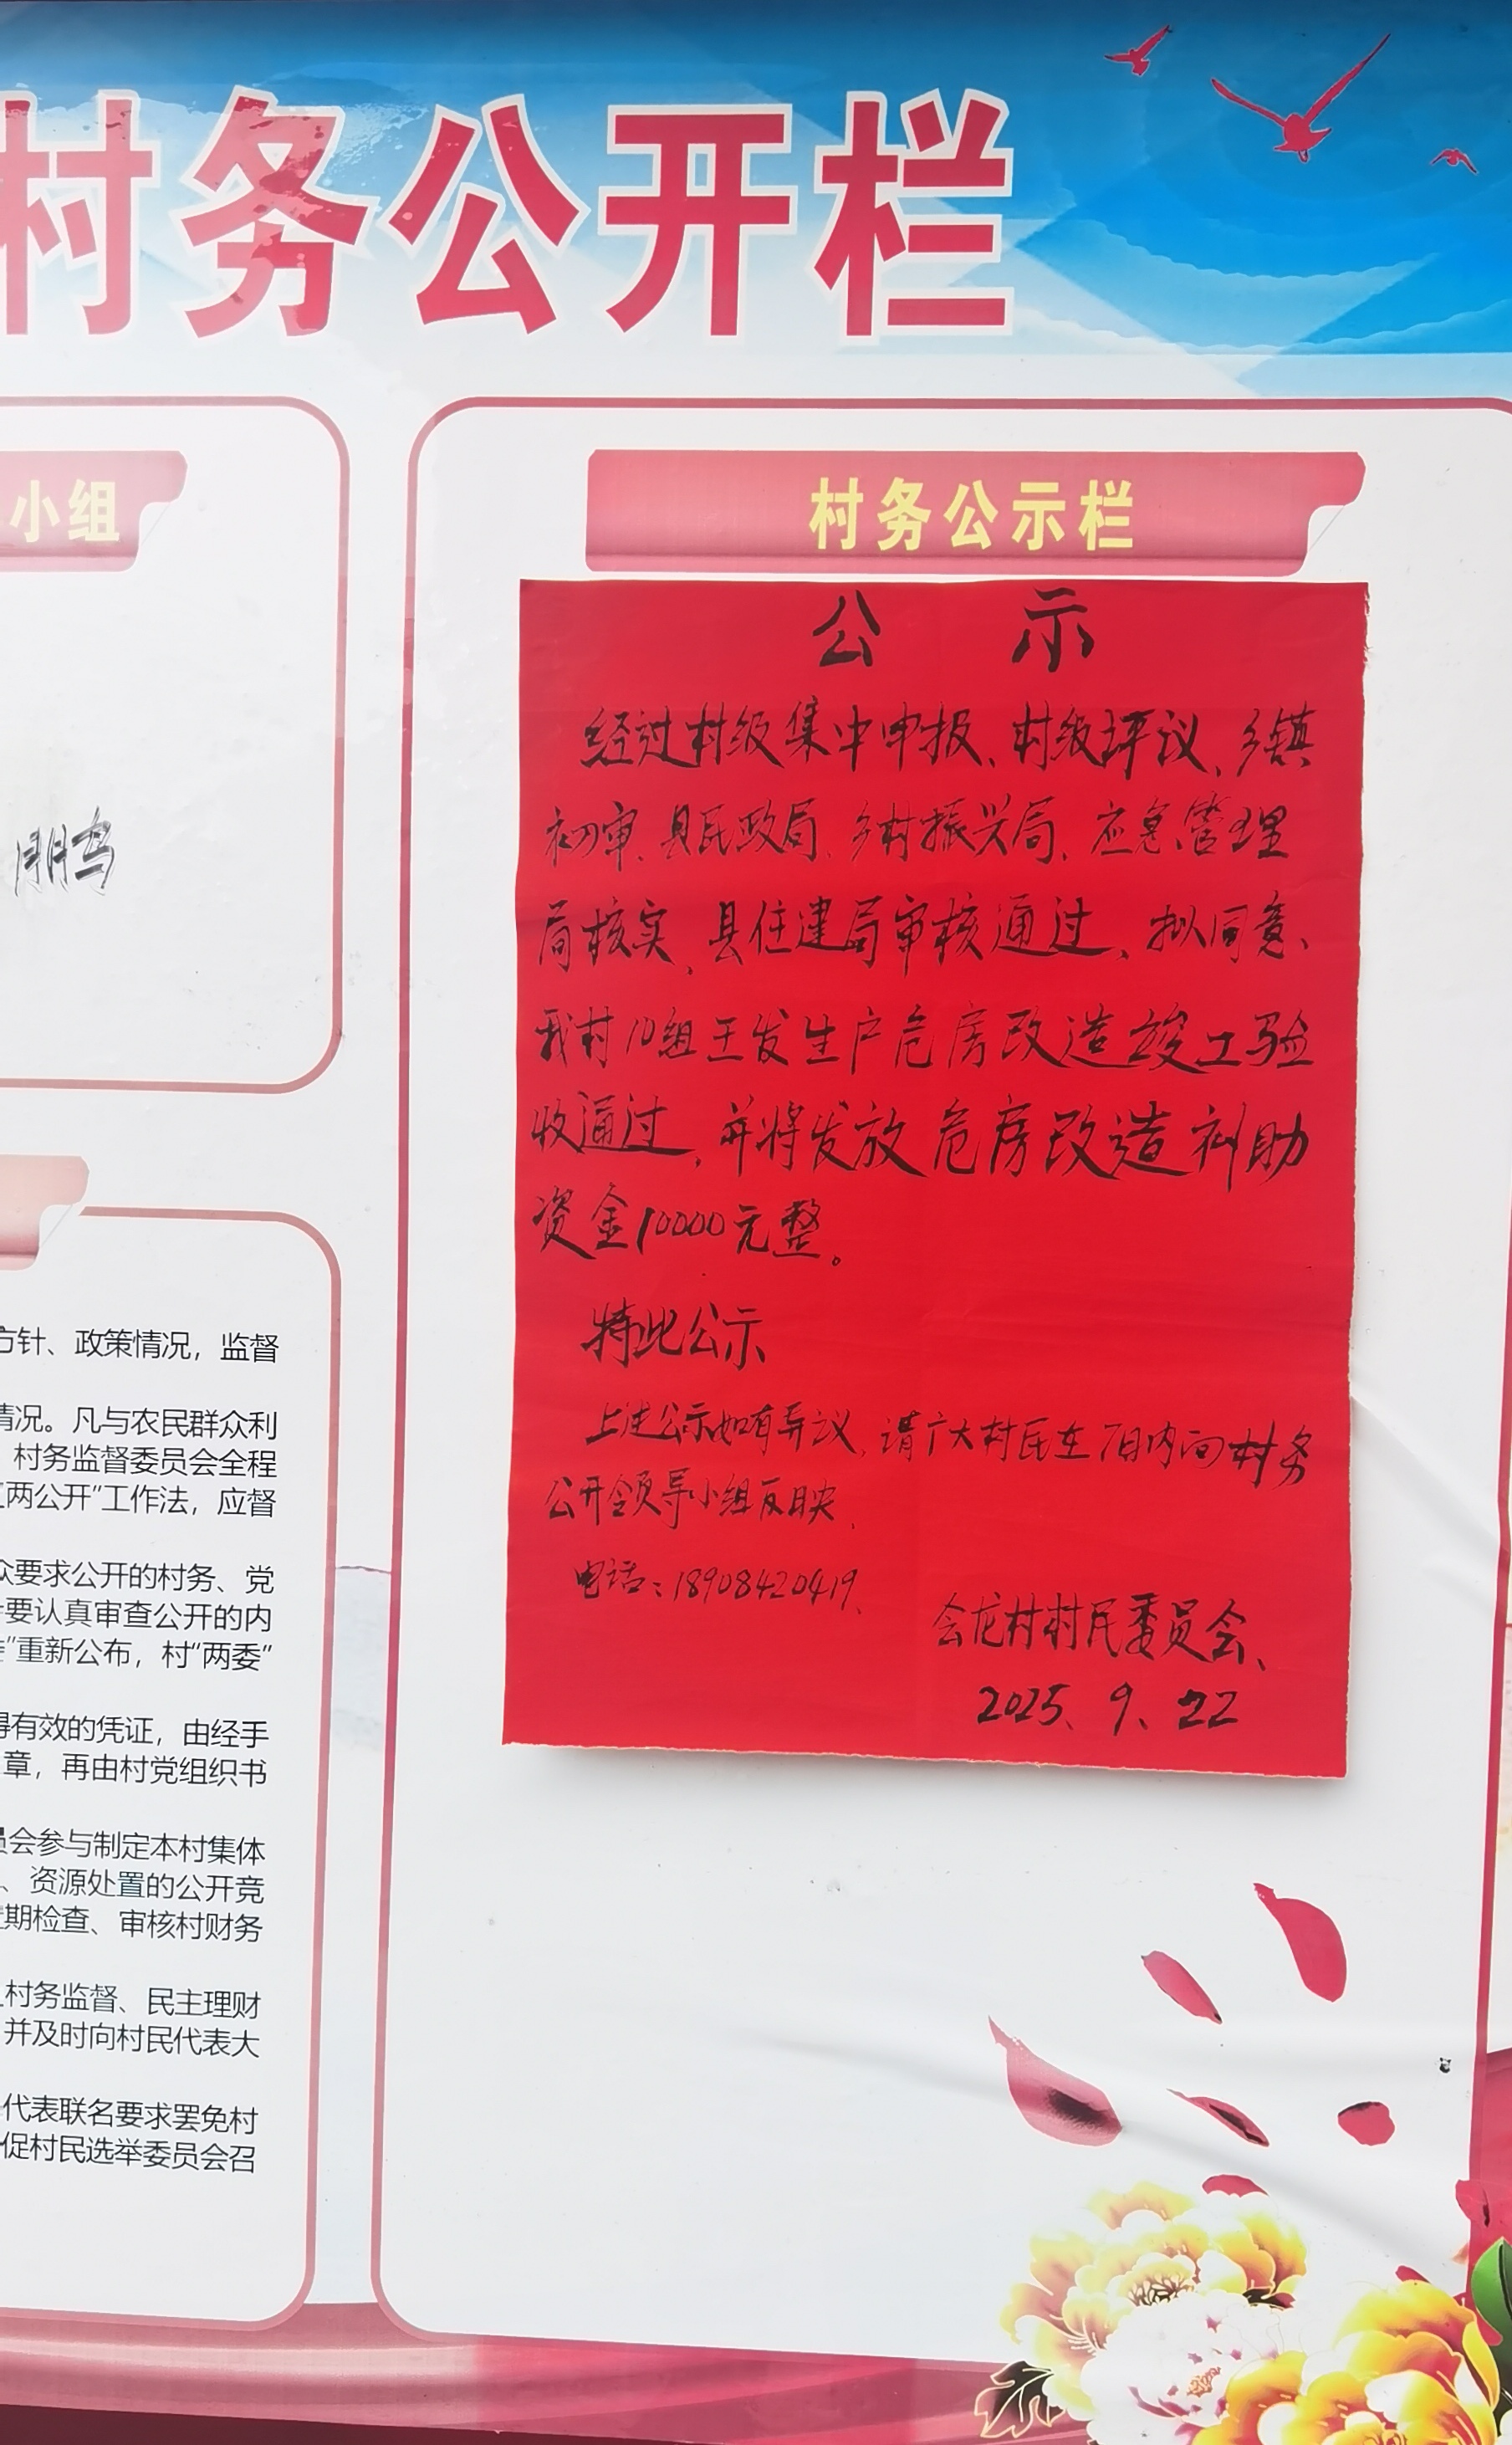 村务公开栏
小组
朋鸟
方针、政策情况，监督
情况。凡与农民群众利
村务监督委员会全程
两公开”工作法，应督
众要求公开的村务、党
要认真审查公开的内
”重新公布，村“两委”
得有效的凭证，由经手
章，再由村党组织书
员会参与制定本村集体
、资源处置的公开竞
期检查、审核村财务
村务监督、民主理财
并及时向村民代表大
代表联名要求罢免村
促村民选举委员会召
村务公示栏
公 示
经过村级集中申报、村级评议、乡镇
初审、县民政局、乡村振兴局、应急管理
局核实、县住建局审核通过、拟同意、
我村10组王发生户危房改造竣工验
收通过、并将发放危房改造补助
资金10000元整。
特此公示
上述公示如有异议、请广大村民在7日内向村务
公开领导小组反映、
电话：18908420419、
会龙村村民委员会、
2025、9、22